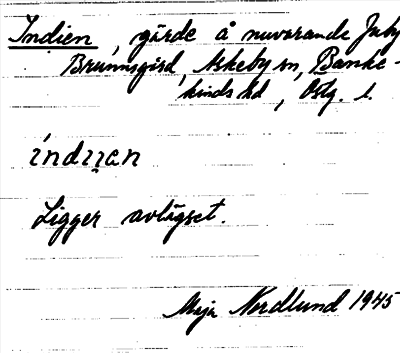 Indien, gärde å nuvarande Jaby
Brunnsgård, Askeby sn, Banke-
kinds hd, Östg. l.
indi̯an
Ligger avlägset.
Maja Nordlund 1945